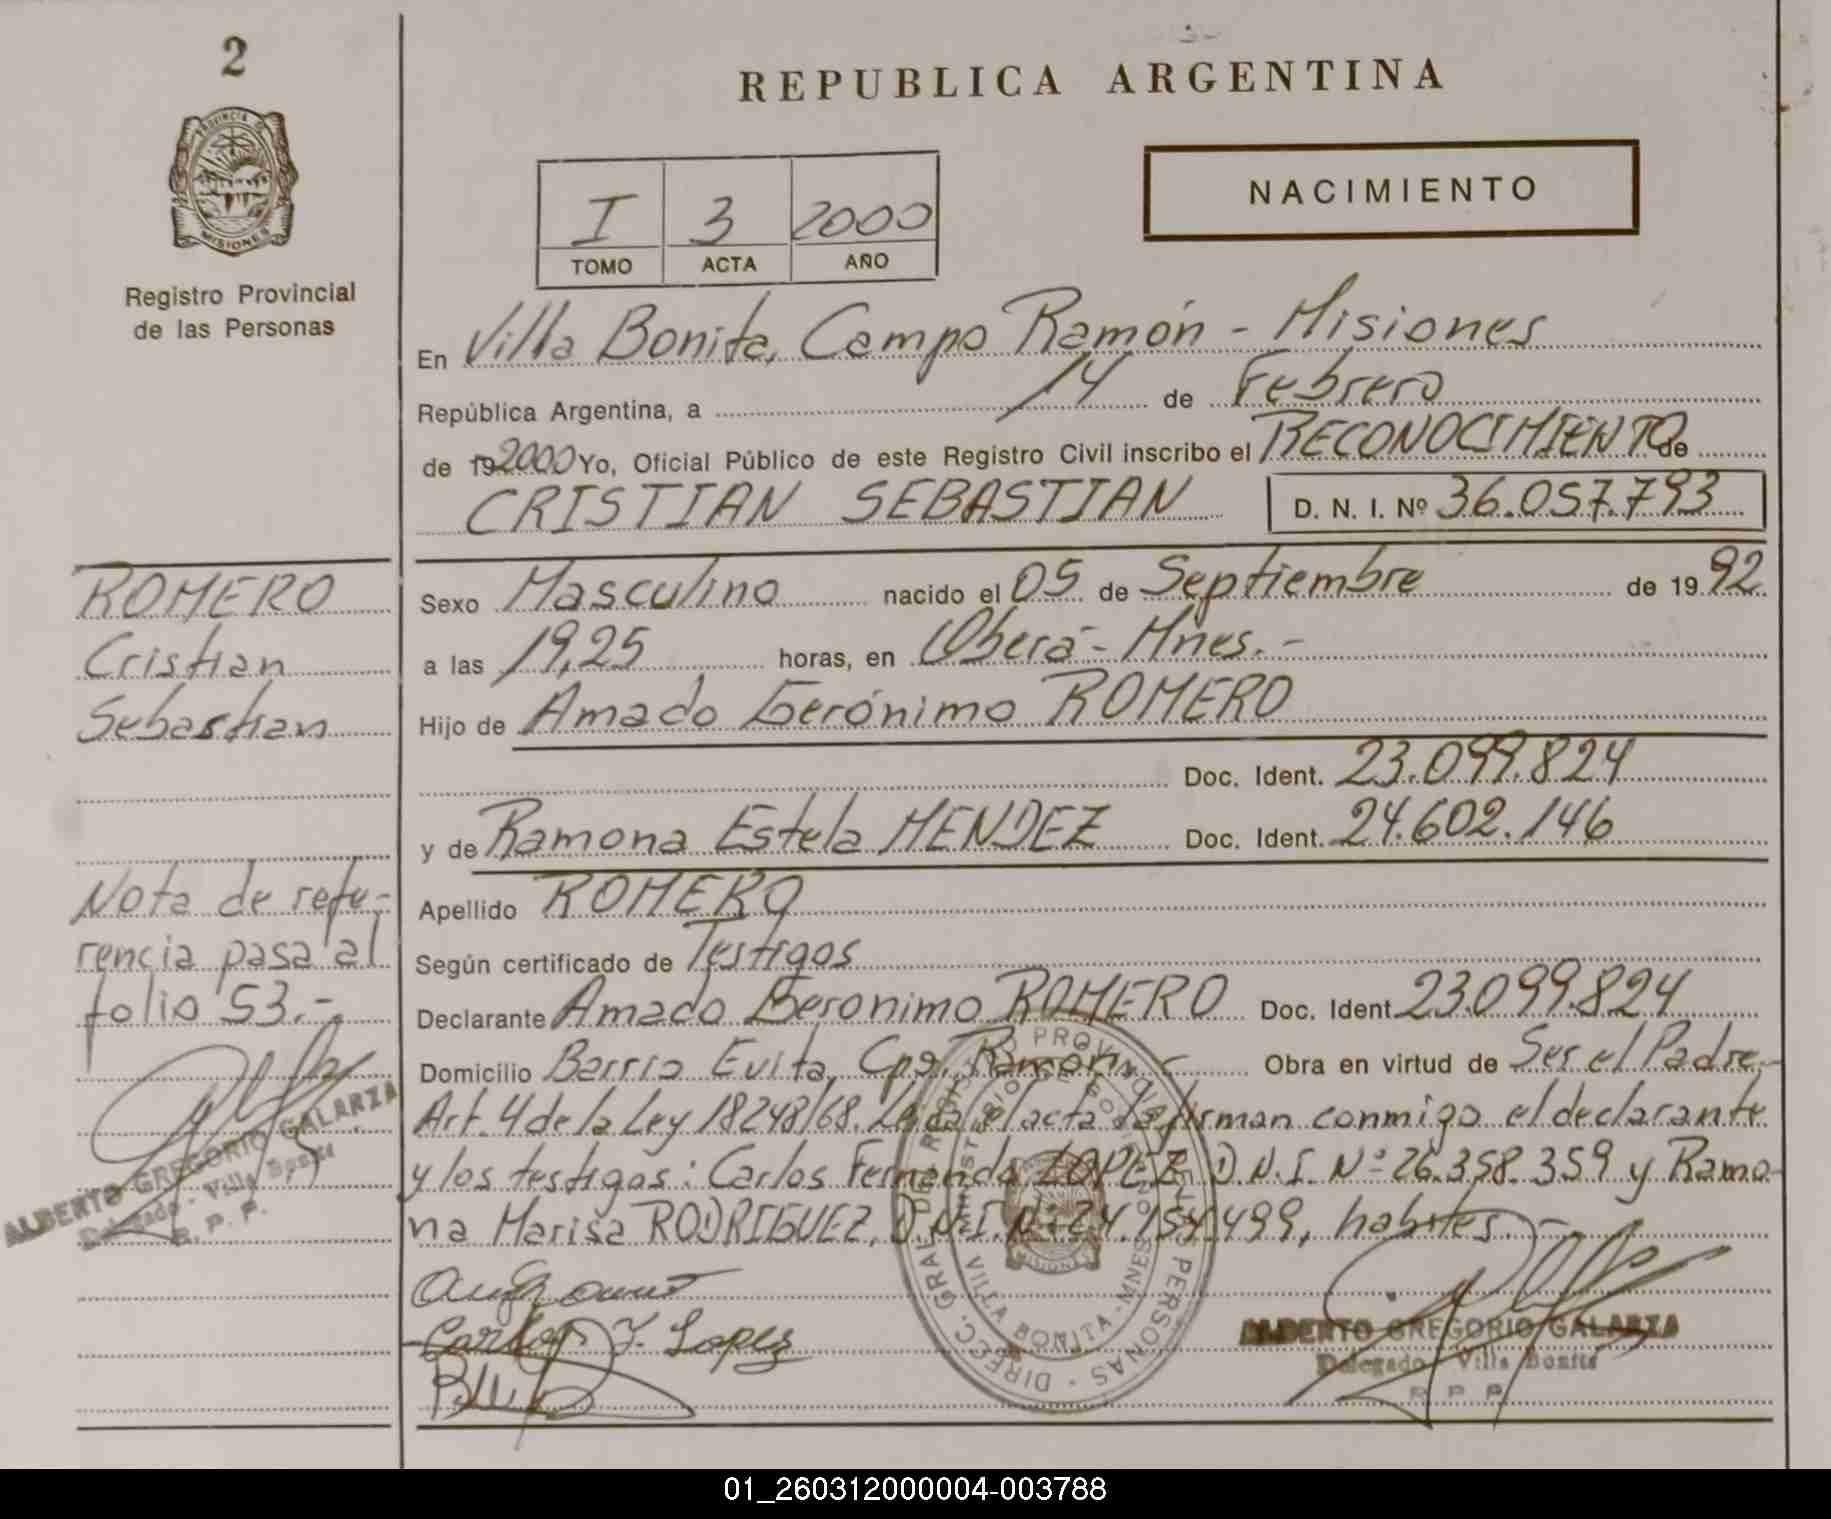 2
PROVINCIA DE
MISIONES
Registro Provincial
de las Personas
REPUBLICA ARGENTINA
NACIMIENTO
I 3 2000
TOMO ACTA AÑO
En Villa Bonita, Campo Ramón - Misiones
República Argentina, a 14 de Febrero
de 19 2000 Yo, Oficial Público de este Registro Civil inscribo el RECONOCIMIENTO de
CRISTIAN SEBASTIAN D. N. I. Nº 36.057.793
ROMERO
Cristian
Sebastian
Nota de refe-
rencia pasa al
folio 53.-
ALBERTO GREGORIO GALARZA
Delegado - Villa Bonita
R. P. P.
Sexo Masculino nacido el 05 de Septiembre de 1992
a las 19,25 horas, en Oberá - Mnes.-
Hijo de Amado Gerónimo ROMERO
Doc. Ident. 23.099.824
y de Ramona Estela MENDEZ Doc. Ident. 24.602.146
Apellido ROMERO
Según certificado de Testigos
Declarante Amado Geronimo ROMERO Doc. Ident. 23.099.824
Domicilio Barrio Evita, Cpo. Ramón Obra en virtud de Ser el Padre.-
Art. 4 de la Ley 18248/68. Leida el acta la firman conmigo el declarante
y los testigos: Carlos Fernando LOPEZ D.N.I. Nº 26.358.359 y Ramo-
na Marisa RODRIGUEZ, D.N.I. Nº 24.154.499, habites.-
Carlos F. Lopez
DIREC. GRAL. DEL REGISTRO PROVINCIAL DE LAS PERSONAS
MINISTERIO DE GOBIERNO
VILLA BONITA - MNES
MISIONES
ALBERTO GREGORIO GALARZA
Delegado - Villa Bonita
R. P. P.
01_260312000004-003788